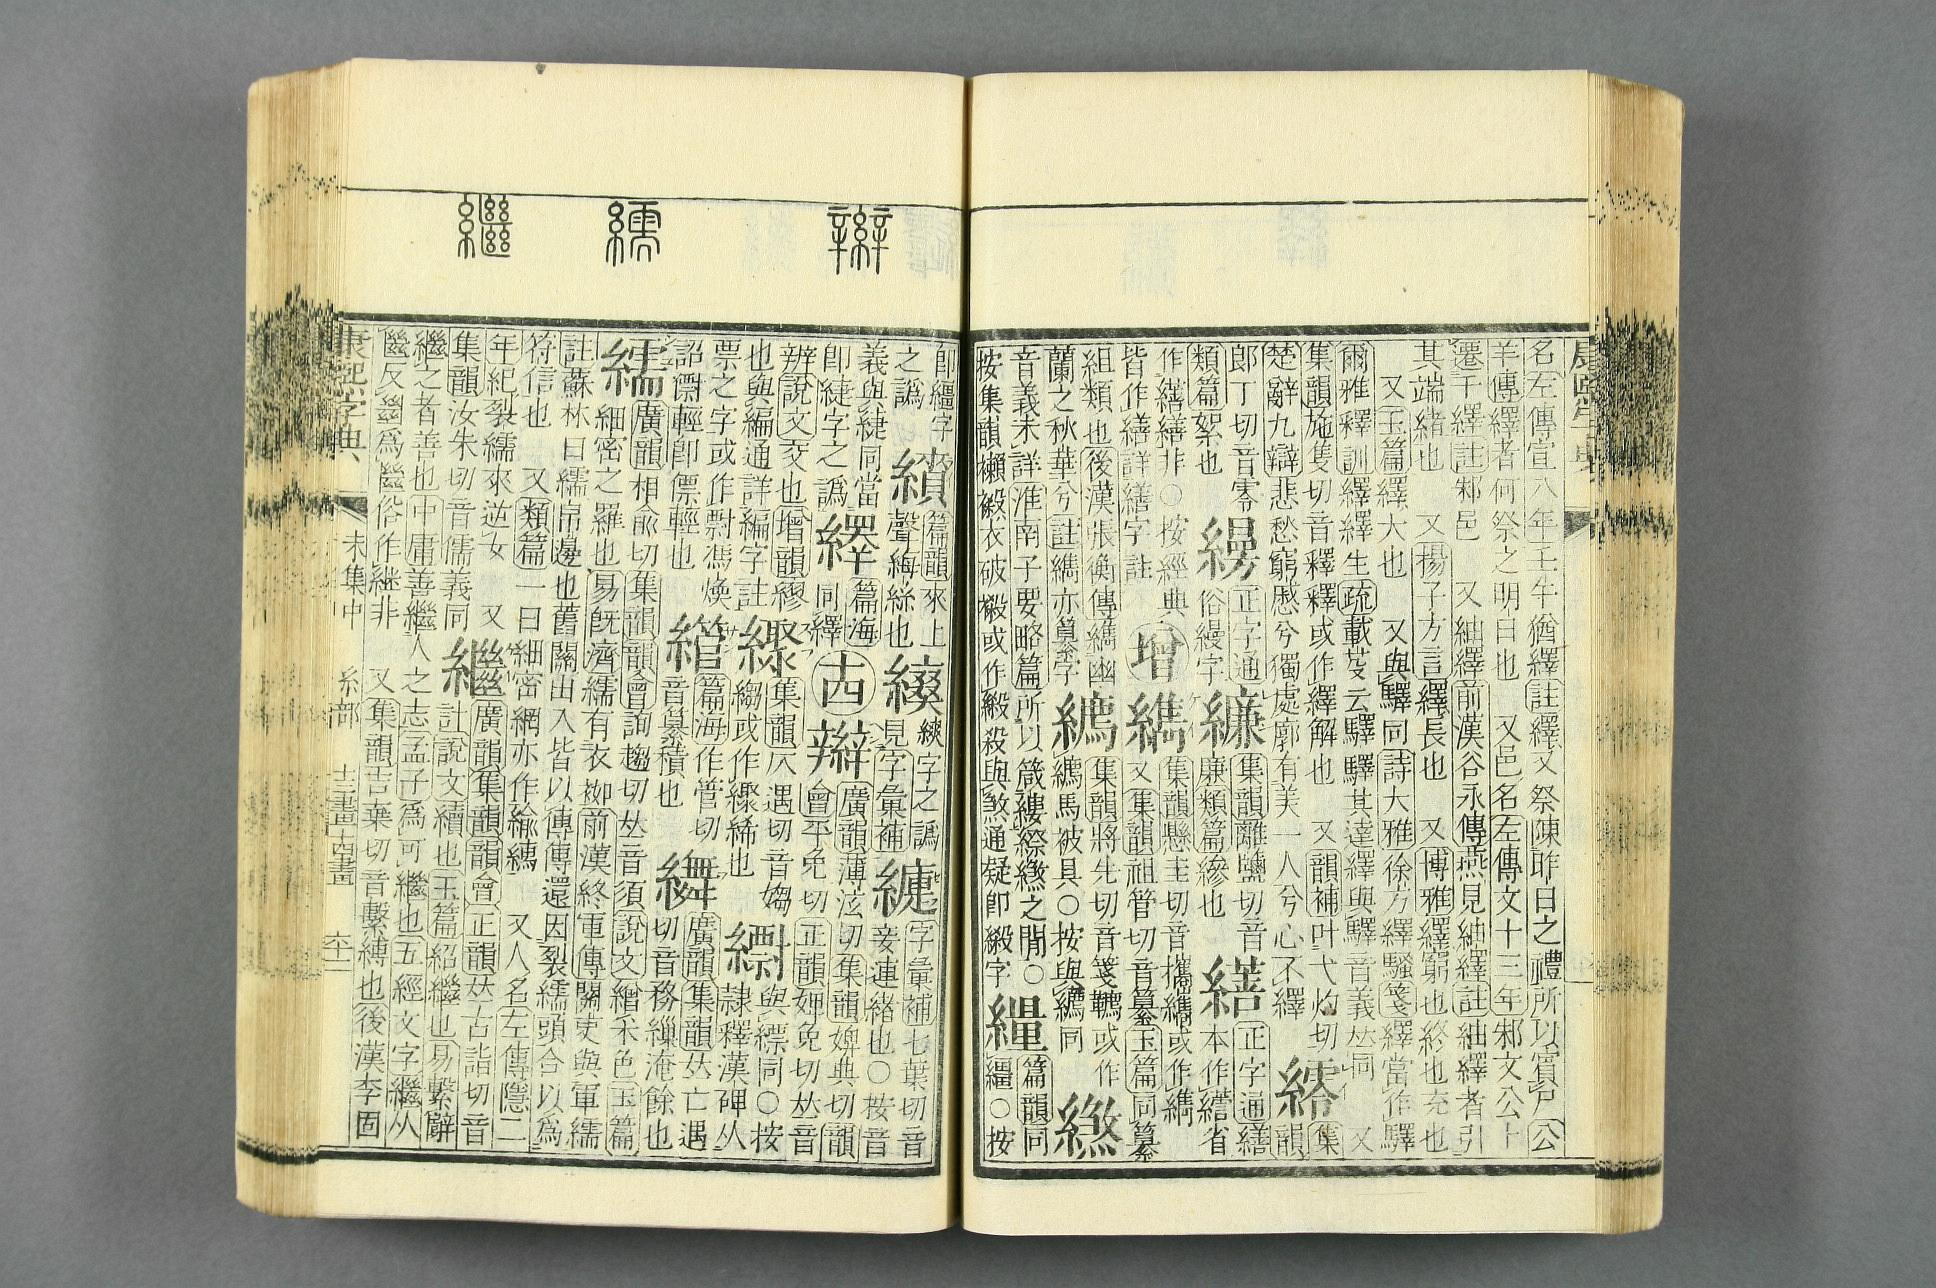 名左傳宣八年壬午猶繹註繹又祭陳昨日之禮所以賓尸公
羊傳繹者何祭之明日也 又邑名左傳文十三年邾文公卜
遷于繹註邾邑 又紬繹前漢谷永傳燕見紬繹註紬繹者引
其端緒也 又揚子方言繹長也 又博雅繹窮也終也充也
又玉篇繹大也 又與驛同詩大雅徐方繹騷箋繹當作驛
爾雅釋訓繹繹生疏載芟云驛驛其達繹與驛音義𠀤同 又
集韻施隻切音釋釋或作繹解也 又韻補叶弋灼切
楚辭九辯悲愁窮慼兮獨處廓有美一人兮心不繹
集韻
郎丁切音零
類篇絮也
正字通
俗縵字
集韻離鹽切音
廉類篇縿也
正字通繕
本作 省
作繕繕非○按經典
皆作繕詳繕字註
增
纗
集韻懸圭切音攜纗或作
又集韻祖管切音纂玉篇同纂
組類也後漢張衡傳纗幽
蘭之秋華兮註纗亦纂字
集韻將先切音箋韉或作
馬被具○按與韉同
音義未詳淮南子要略篇所以箴縷縩繺之閒○
按集韻襰𧜁衣破 或作 殺與煞通疑卽 字
繮
篇韻同
繮○按
卽繮字
之譌
篇韻來上
聲絲也
字之譌
見字彙補
字彙補七葉切音
妾連緒也○按音
義與緁同當
卽緁字之譌
篇海
同繹
古
辮
廣韻薄泫切集韻婢典切韻
會平免切正韻婢免切𠀤音
辨說文交也增韻繆
也與編通詳編字註
集韻仄遇切音㑳
縐或作 絺也
與縹同○按
隷釋漢碑从
票之字或作 馮煥
詔 輕卽僄輕也
篇海作管切
音纂積也
廣韻集韻𠀤亡遇
切音務繅淹餘也
繻
廣韻相俞切集韻韻會詢趨切𠀤音須說文繒采色玉篇
細密之羅也易旣濟繻有衣袽前漢終軍傳關吏與軍繻
註蘇林曰繻帛邊也舊關出入皆以傳傳還因裂繻頭合以爲
符信也 又類篇一曰細密網亦作緰 又人名左傳隱二
年紀裂繻來逆女 又
集韻汝朱切音儒義同
繼
廣韻集韻韻會正韻𠀤古詣切音
計說文續也玉篇紹繼也易繫辭
繼之者善也中庸善繼人之志孟子爲可繼也五經文字繼从
㡭反𢇍爲㡭俗作継非 又集韻吉棄切音繫縛也後漢李固
康熙字典 未集中 糸部 十三畫 十四畫 六十一
辮
繻
繼